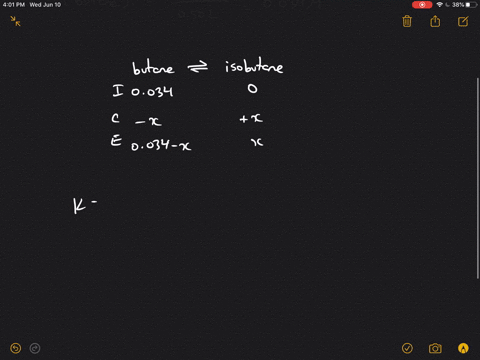 4:01 PM Wed Jun 10 38%
butane ⇌ isobutane
I 0.034 0
C -x +x
E 0.034-x x
K -